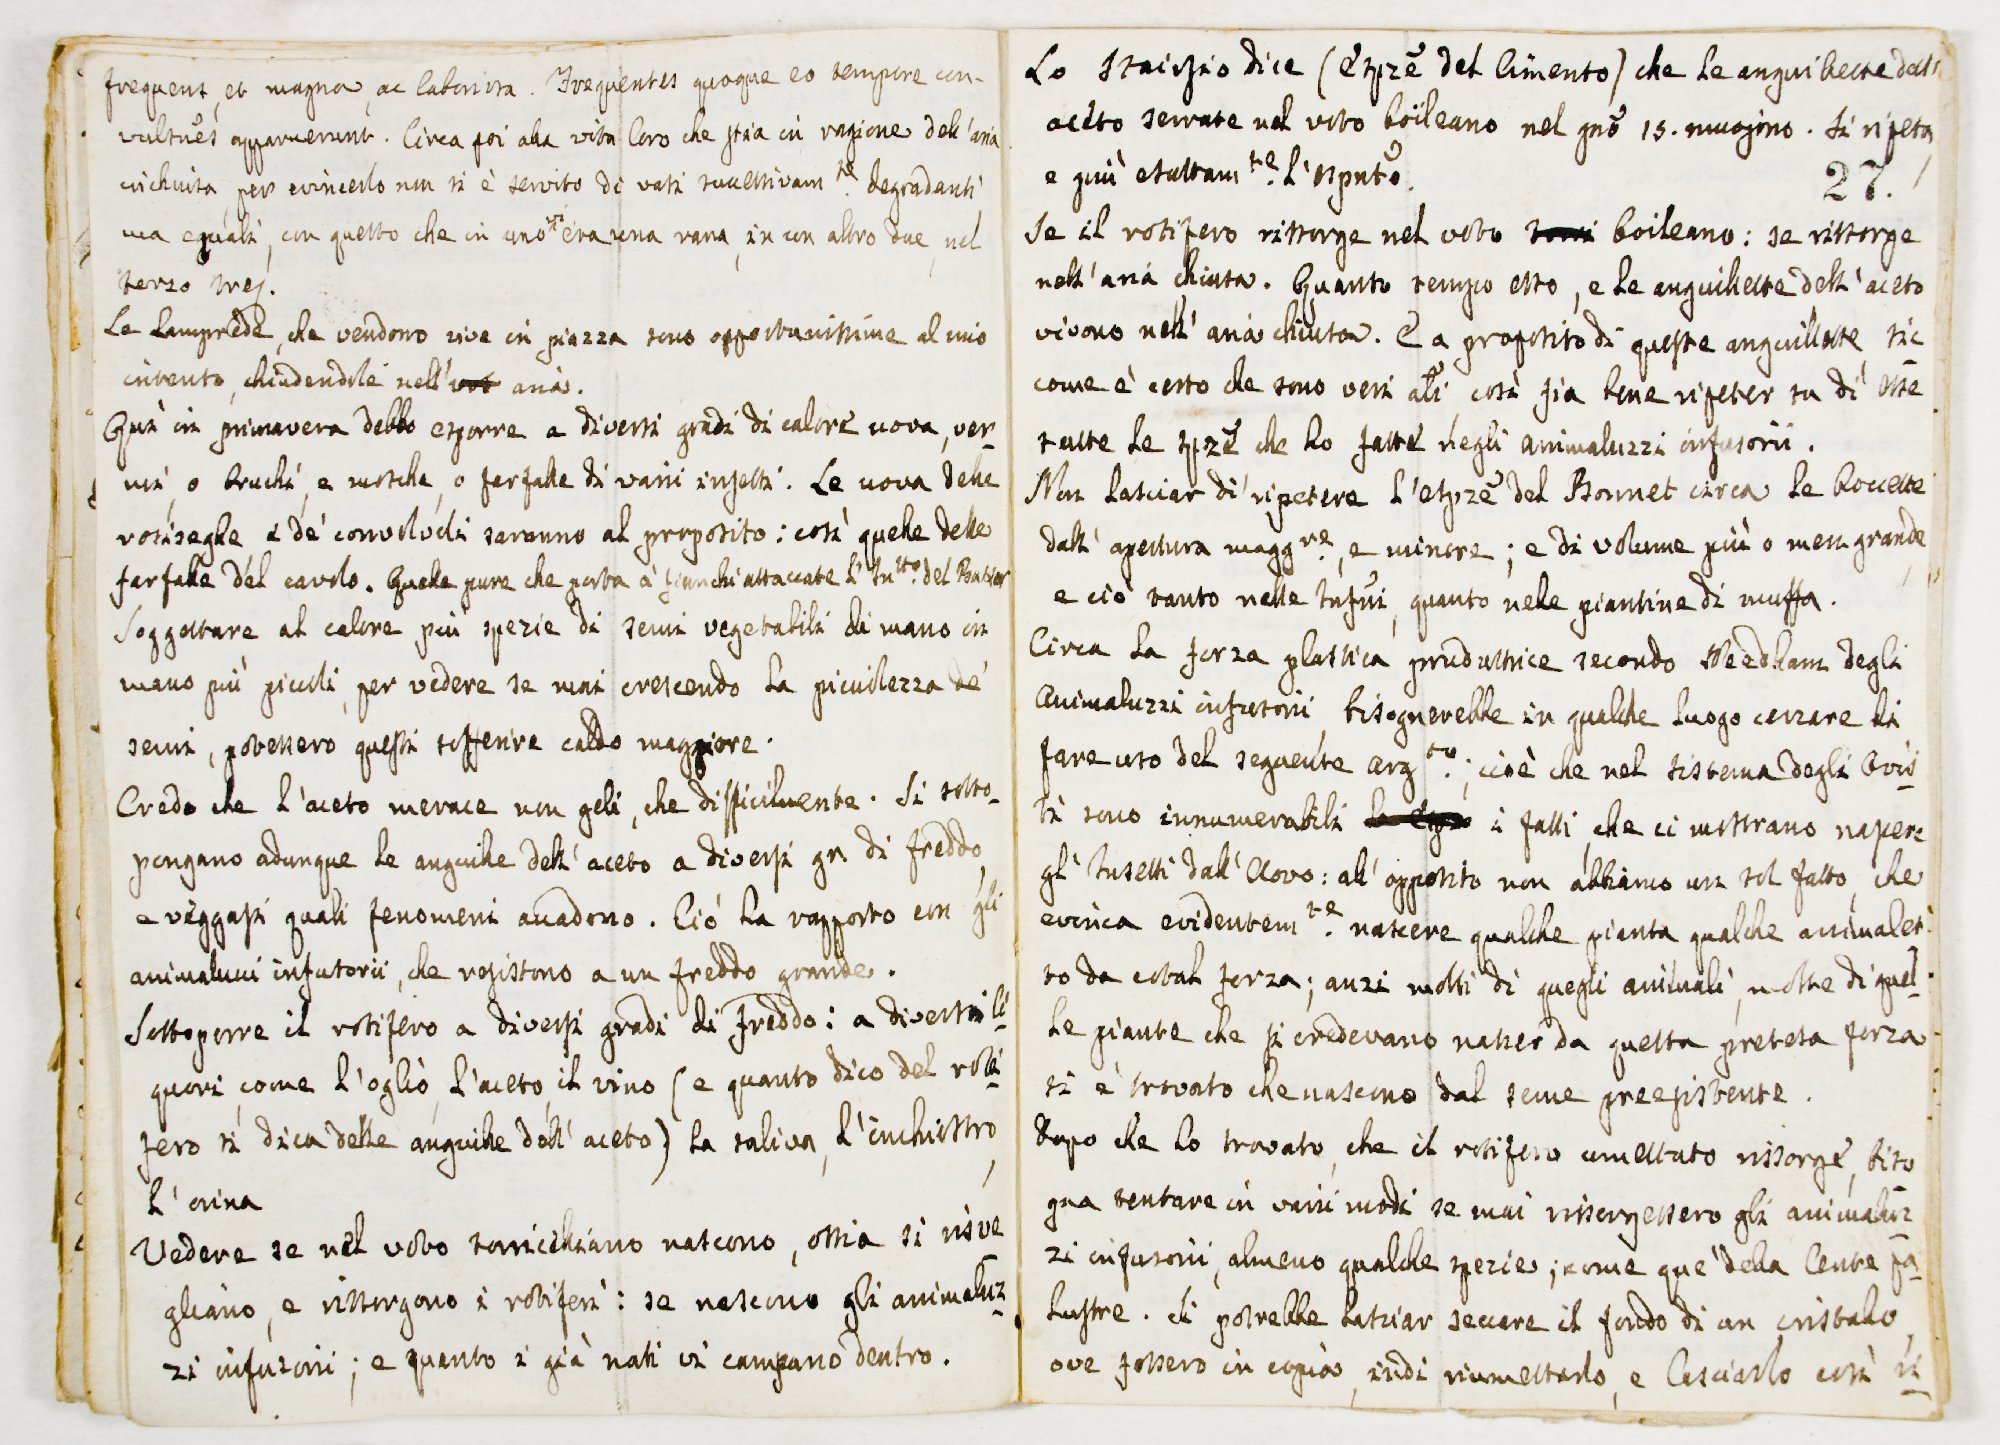 frequens, et magna, ac laboriosa. Frequentes quoque eo tempore con-
vulsiões apparuerunt. Circa poi alla vita loro che stia in ragione dell'aria
inchiusa, per evincerlo non si è servito di vasi successivam.te degradanti
ma eguali, con questo che in uno vi era una rana, in un altro due, nel
terzo tre.
Le Lamprede, che vendono vive in piazza sono opportunissime al mio
intento, chiudendole nell' aria.
Quì in primavera debbo esporre a diversi gradi di calore uova, ver-
mi, o bruchi, e mosche, o farfalle di varii insetti. Le uova delle
rosiseghe e de' convolvoli saranno al proposito: così quelle delle
farfalle del cavolo. Quelle pure che porta a' fianchi attaccate l'
Soggettare al calore più spezie di semi vegetabili di mano in
mano più piccoli, per vedere se mai crescendo la picciolezza de'
semi, potessero questi sofferire caldo maggiore.
Credo che l'aceto merace non geli, che difficilmente. Si sotto-
pongano adunque le anguille dell'aceto a diversi gr. di freddo,
e veggasi quali fenomeni accadono. Ciò ha rapporto con gli
animalucci infusorii, che resistono a un freddo grande.
Sottoporre il rotifero a diversi gradi di freddo: a diversi li-
quori, come l'oglio, l'aceto, il vino (e quanto dico del roti-
fero si dica delle anguille dell'aceto) la saliva, l'inchiostro,
l'orina
Vedere se nel voto torricelliano nascono, ossia si risve
gliano, e rissorgono i rotiferi: se nascono gli animaluz-
zi infusorii; e quanto i già nati vi campano dentro.
Lo dice (Espze del Cimento) che le anguillette dell'
aceto serrate nel voto boileano nel gno 15. muojono. Si ripeta,
e più esattam.te l'
27.
Se il rotifero rissorge nel voto boileano: se rissorge
nell'aria chiusa. Quanto tempo esso, e le anguillette dell'aceto
vivono nell'aria chiusa. E a proposito di queste anguillette, sic
come è certo che sono veri ali così fia bene ripeter su di esse
tutte le spze che ho fatte negli animaluzzi infusorii.
Non lasciar di ripetere l'espze del Bonnet circa le boccette
dall'apertura magg.re, e minore; e di volume più o men grande,
e ciò tanto nelle infusi, quanto nelle piantine di muffa.
Circa la forza plastica produttrice secondo Needham degli
Animaluzzi infusorii bisognerebbe in qualche luogo cercare di
fare uso del seguente arg.to; cioè che nel sistema degli Ovis-
ti sono innumerabili i fatti, che ci mostrano nascere
gl' Insetti dall'Uovo: all'opposito non abbiamo un sol fatto, che
evinca evidentem.te nascere qualche pianta qualche animalet-
to da cotal forza; anzi molti di quegli animali, molte di quel-
le piante che si credevano nascer da questa pretesa forza
si è trovato che nascono dal seme preesistente.
Dopo che ho trovato, che il rotifero umettato rissorge, biso
gna tentare in varii modi se mai rissorgessero gli animaluz
zi infusorii, almeno qualche spezie; come que' della Lente pa-
lustre. Si potrebbe lasciar seccare il fondo di un cristallo,
ove fossero in copia, indi riumettarlo, e lasciarlo così ri-